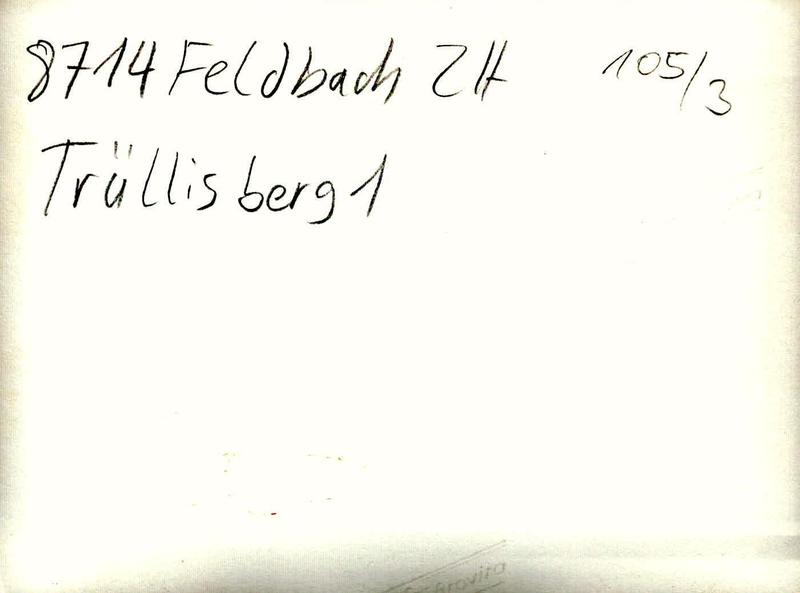 8714 Feldbach ZH 105/3
Trüllisberg 1